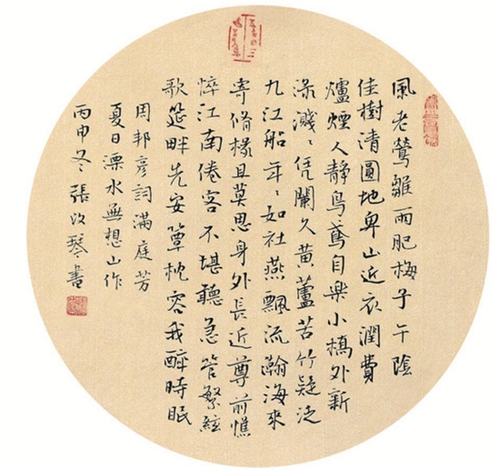 風老鶯雛雨肥梅子午陰
佳樹清圓地卑山近衣潤費
爐煙人靜鳥鳶自樂小橋外新
淥濺〻凭闌久黃蘆苦竹疑泛
九江船年〻如社燕飄流瀚海來
寄脩椽且莫思身外長近尊前憔
悴江南倦客不堪聽急管繁絃
歌筵畔先安簟枕容我醉時眠
周邦彥詞滿庭芳
夏日溧水無想山作
丙申冬張改琴書